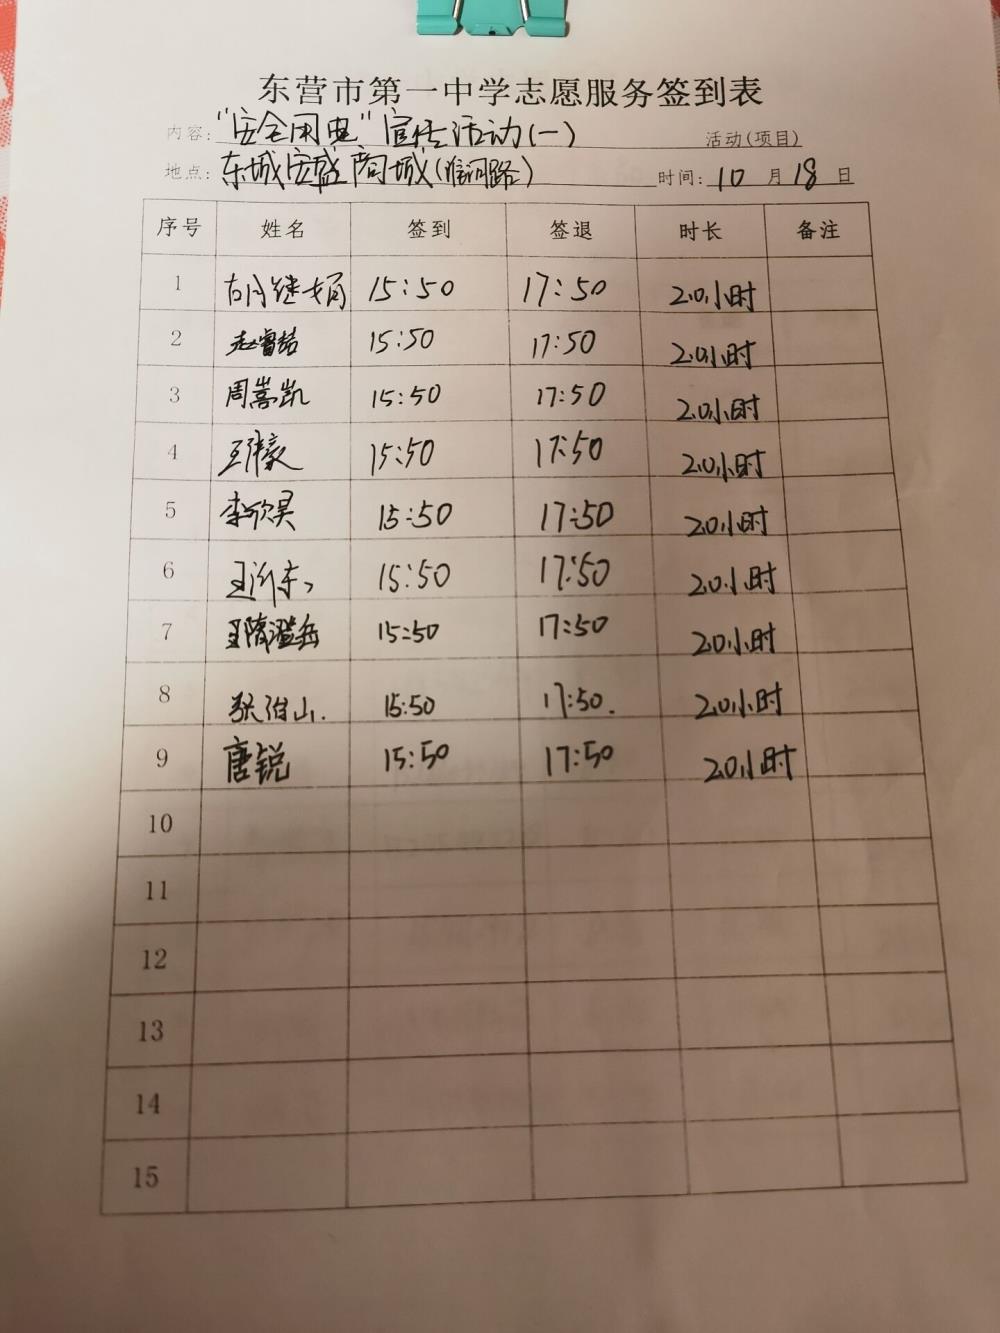 东营市第一中学志愿服务签到表
内容:"安全用电"宣传活动(一) 活动(项目)
地点:东城安盛商城(淮河路) 时间:10月18日
序号 姓名 签到 签退 时长 备注
1 胡继娟 15:50 17:50 2.0小时
2 赵睿喆 15:50 17:50 2.0小时
3 周嵩凯 15:50 17:50 2.0小时
4 15:50 17:50 2.0小时
5 李欣昊 15:50 17:50 2.0小时
6 15:50 17:50 2.0小时
7 15:50 17:50 2.0小时
8 15:50 17:50. 2.0小时
9 唐锐 15:50 17:50 2.0小时
10
11
12
13
14
15